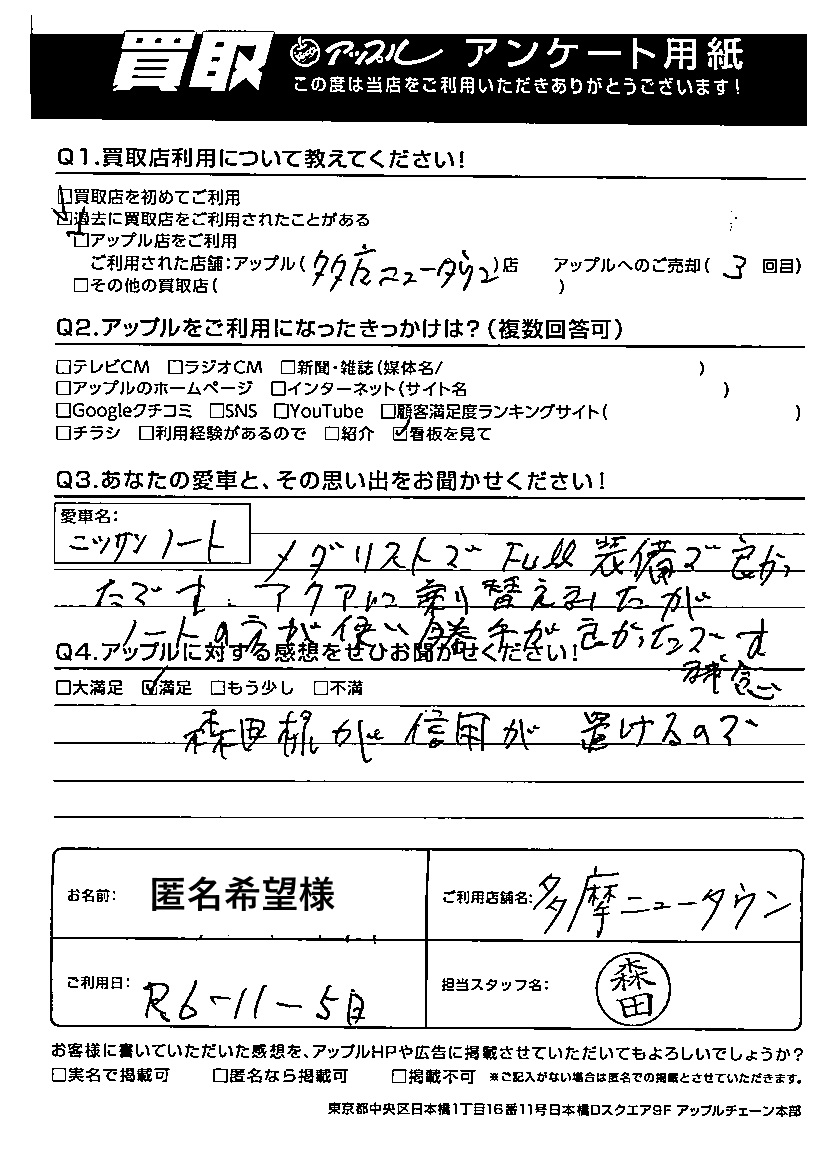 買取 アップル アンケート用紙
この度は当店をご利用いただきありがとうございます!
Q1.買取店利用について教えてください!
□買取店を初めてご利用
☑過去に買取店をご利用されたことがある
□アップル店をご利用
ご利用された店舗:アップル(多摩ニュータウン)店 アップルへのご売却(3 回目)
□その他の買取店( )
Q2.アップルをご利用になったきっかけは?(複数回答可)
□テレビCM □ラジオCM □新聞・雑誌(媒体名/ )
□アップルのホームページ □インターネット(サイト名 )
□Googleクチコミ □SNS □YouTube □顧客満足度ランキングサイト( )
□チラシ □利用経験があるので □紹介 ☑看板を見て
Q3.あなたの愛車と、その思い出をお聞かせください!
愛車名:
ニッサン ノート
メダリストで Full 装備で良かっ
たです。アクアに乗り替えましたが
ノートの方が使い勝手が良かったです
残念
Q4.アップルに対する感想をぜひお聞かせください!
□大満足 ☑満足 □もう少し □不満
森田様が信用が 置けるので
お名前: 匿名希望様
ご利用店舗名: 多摩ニュータウン
ご利用日: R6-11-5日
担当スタッフ名: 森田
お客様に書いていただいた感想を、アップルHPや広告に掲載させていただいてもよろしいでしょうか?
□実名で掲載可 □匿名なら掲載可 □掲載不可 ※ご記入がない場合は匿名での掲載とさせていただきます。
東京都中央区日本橋1丁目16番11号日本橋Dスクエア9F アップルチェーン本部